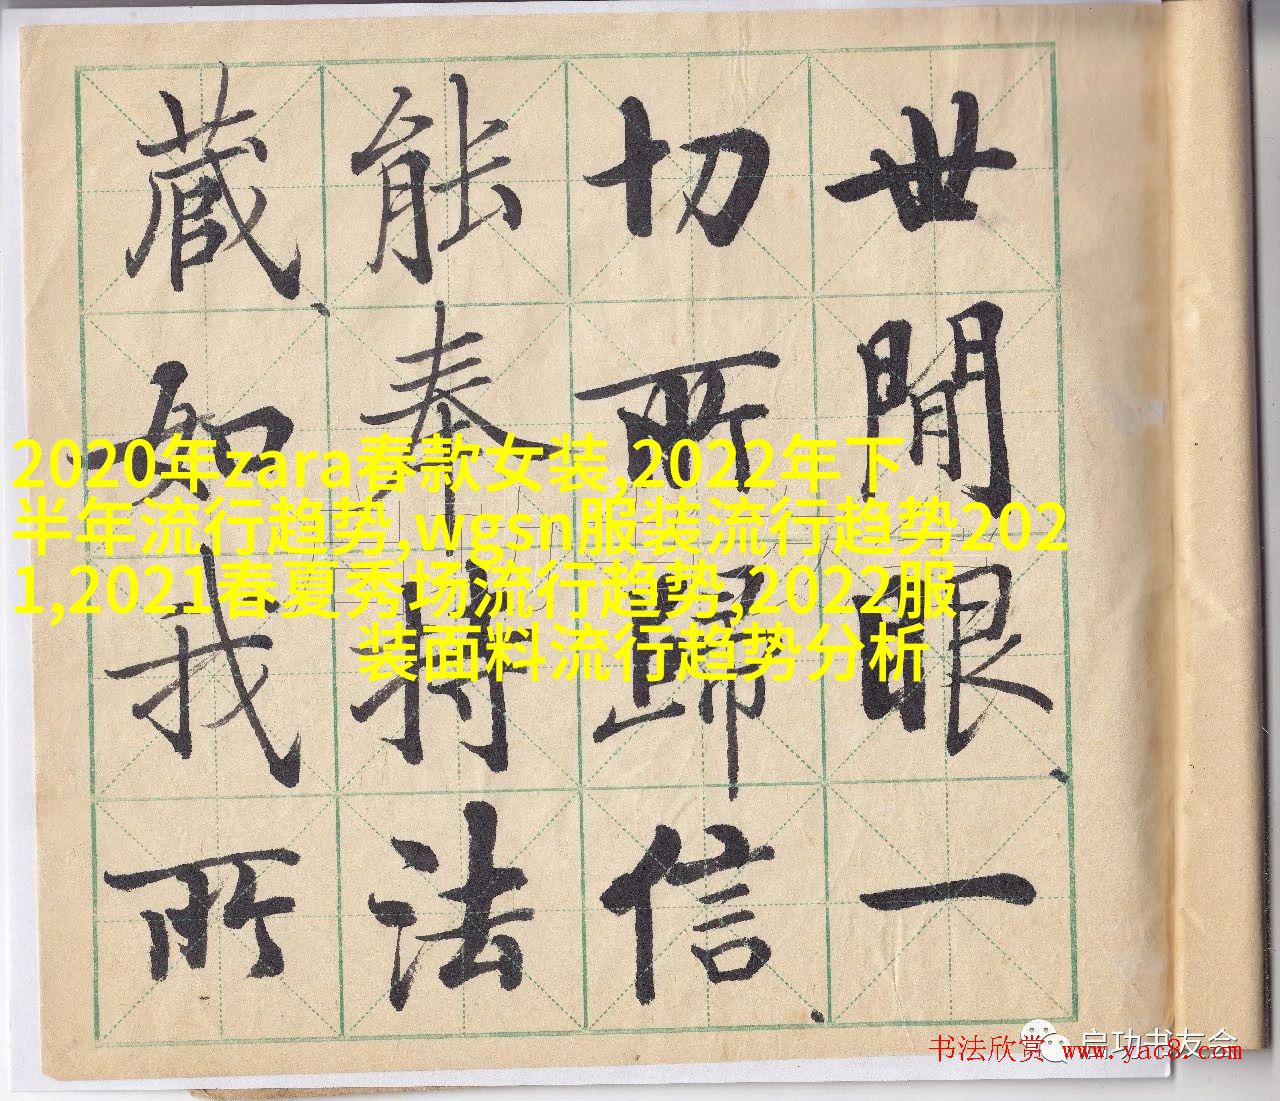 世閒眼一
切所歸信
能奉持法
藏如我所
2020年zara春款女装,2022年下
半年流行趋势,wgsn服装流行趋势202
1,2021春夏秀场流行趋势,2022服
装面料流行趋势分析
启功书友会
书法欣赏 www.yac8.com